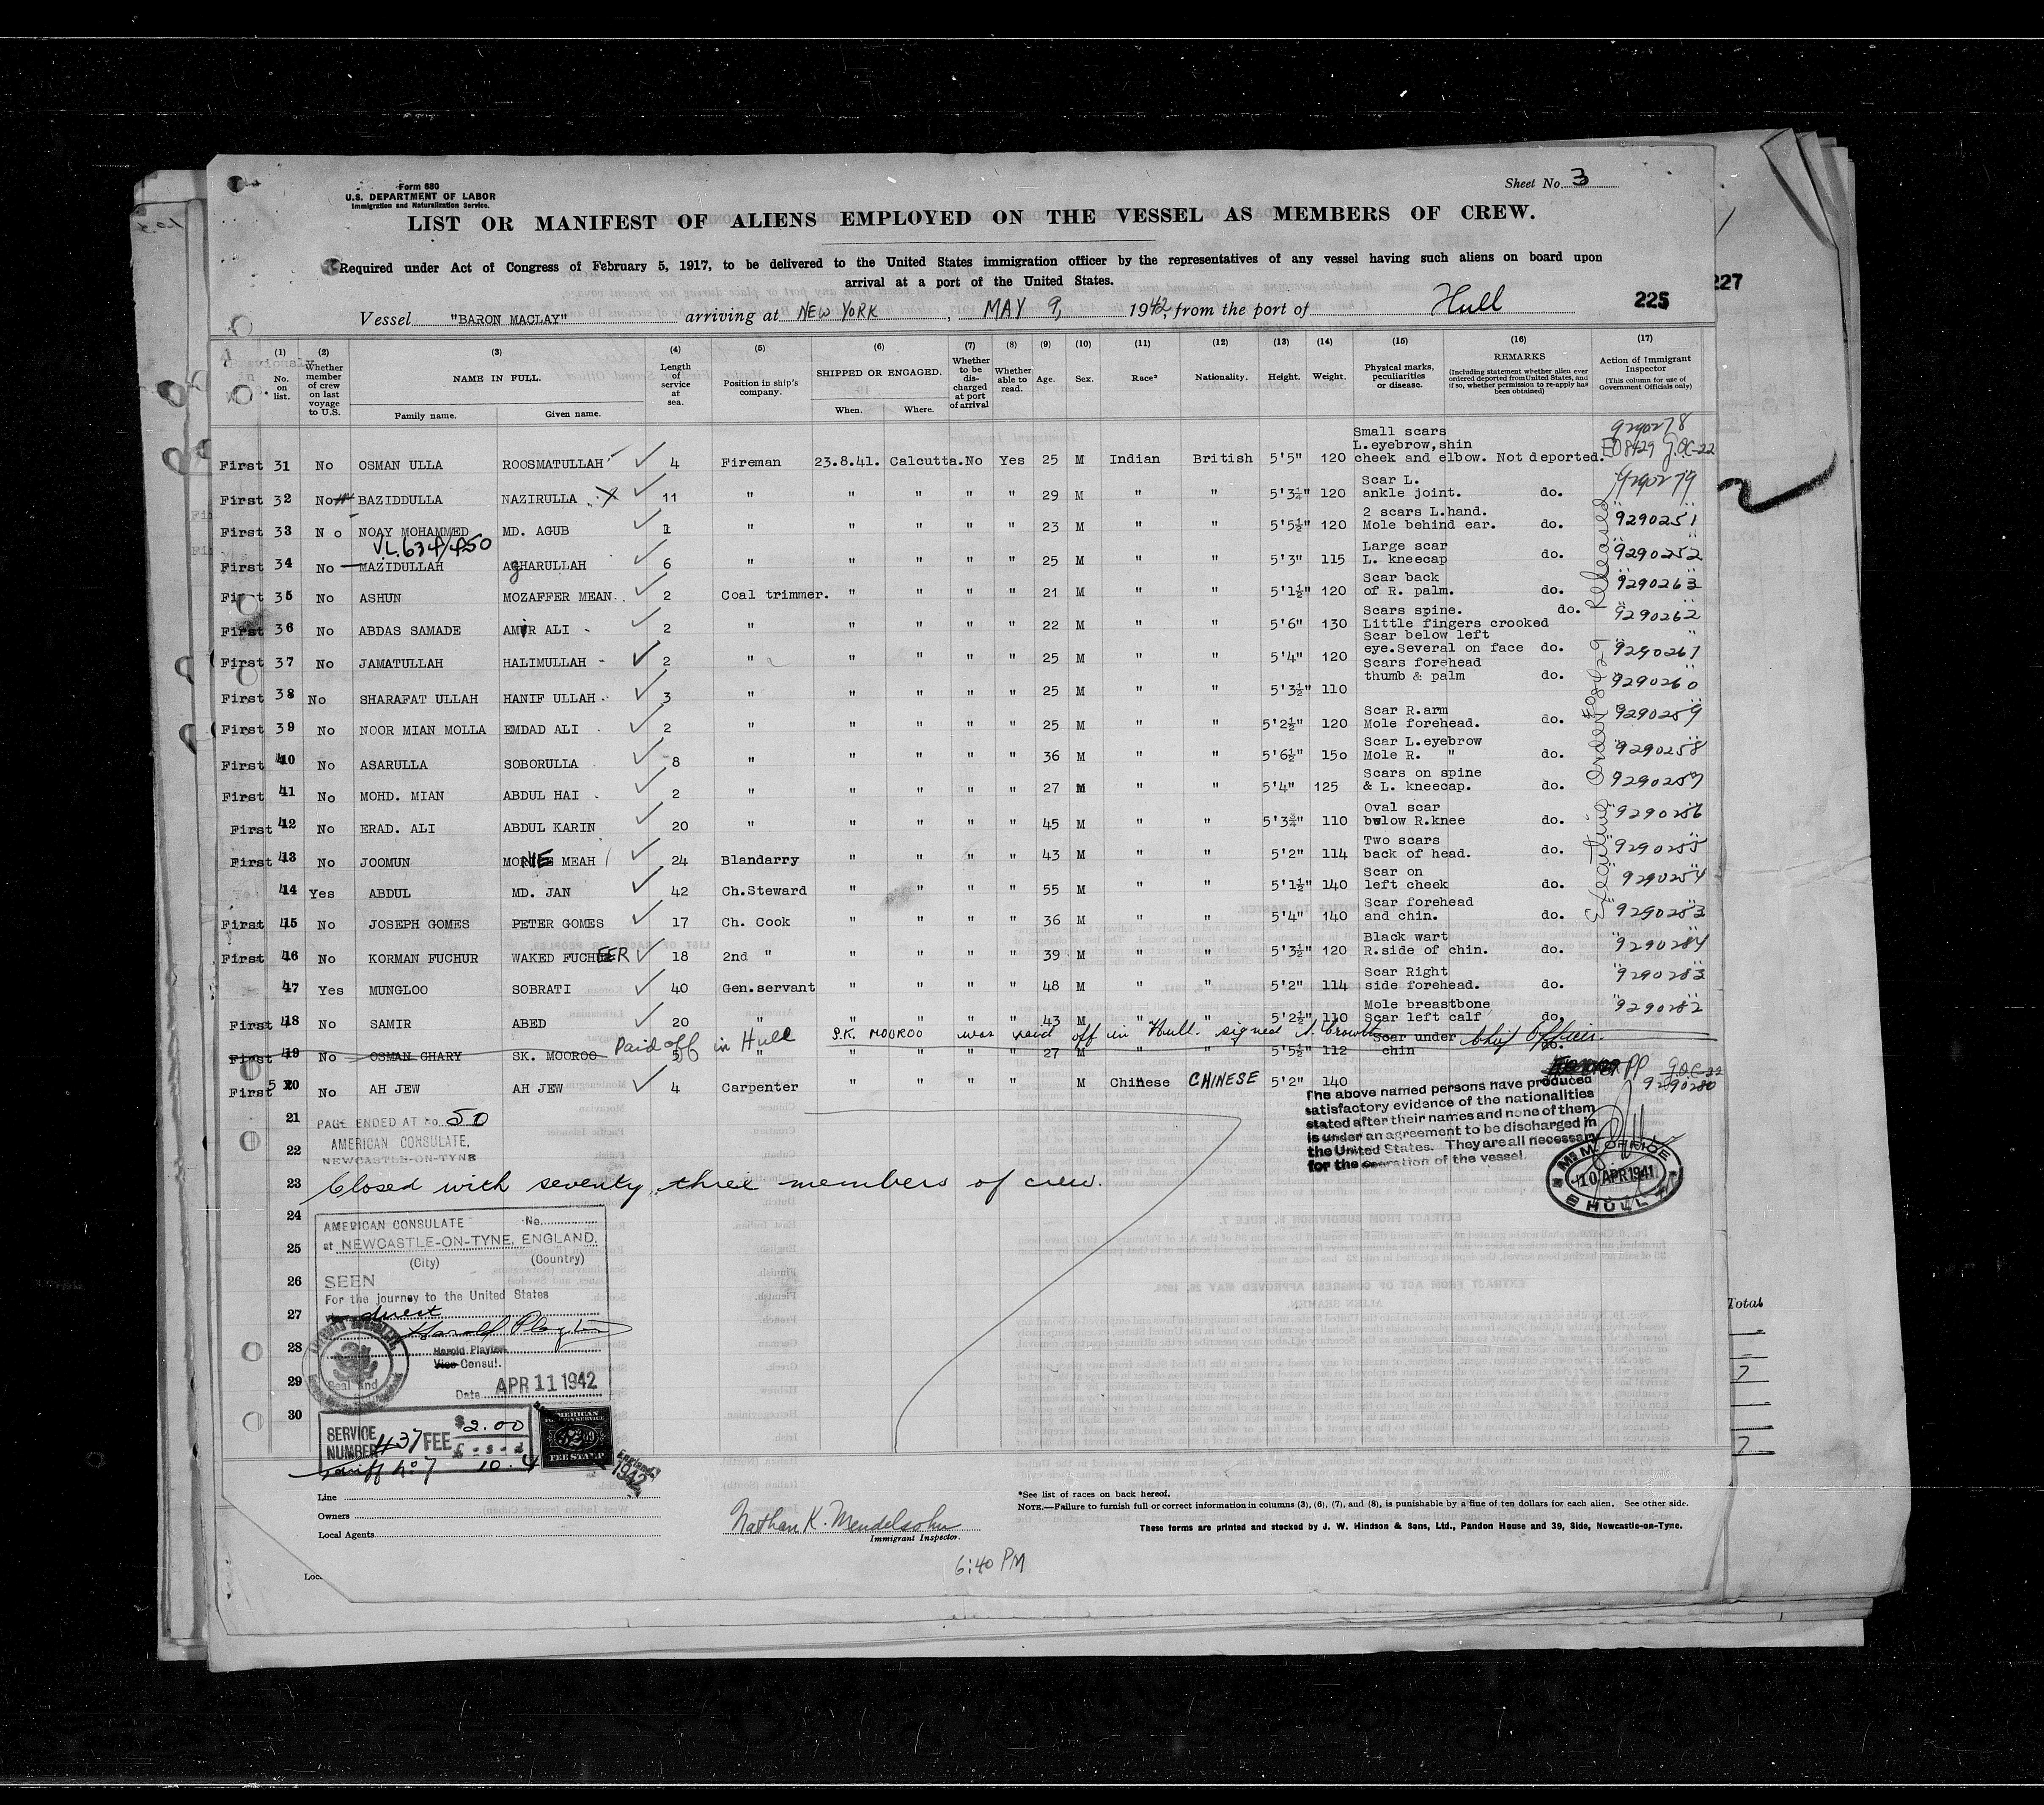 Form 680
U.S. DEPARTMENT OF LABOR
Immigration and Naturalization Service.
Sheet No. 3
LIST OR MANIFEST OF ALIENS EMPLOYED ON THE VESSEL AS MEMBERS OF CREW.
Required under Act of Congress of February 5, 1917, to be delivered to the United States immigration officer by the representatives of any vessel having such aliens on board upon
arrival at a port of the United States.
227
225
Vessel "BARON MACLAY" arriving at NEW YORK, MAY 9, 1942, from the port of Hull
(1) No. on list. (2) Whether member of crew on last voyage to U.S. (3) NAME IN FULL. Family name. Given name. (4) Length of service at sea. (5) Position in ship's company. (6) SHIPPED OR ENGAGED. When. Where. (7) Whether to be discharged at port of arrival (8) Whether able to read. (9) Age. (10) Sex. (11) Race* (12) Nationality. (13) Height. (14) Weight. (15) Physical marks, peculiarities or disease. (16) REMARKS (Including statement whether alien ever ordered deported from United States, and if so, whether permission to re-apply has been obtained) (17) Action of Immigrant Inspector (This column for use of Government Officials only)
First 31 No OSMAN ULLA ROOSMATULLAH 4 Fireman 23.8.41. Calcutta. No Yes 25 M Indian British 5'5" 120 Small scars L.eyebrow, shin cheek and elbow. Not deported. 9290278 EO 8429
First 32 No BAZIDDULLA NAZIRULLA 11 " " " " " 29 M " " 5'3¼" 120 Scar L. ankle joint. do. 9290279
First 33 No NOAY MOHAMMED MD. AGUB 1 " " " " " 23 M " " 5'5½" 120 2 scars L.hand. Mole behind ear. do. 9290251
V.L. 634/450
First 34 No MAZIDULLAH AGHARULLAH 6 " " " " " 25 M " " 5'3" 115 Large scar L. kneecap do. 9290252
First 35 No ASHUN MOZAFFER MEAN. 2 Coal trimmer. " " " " 21 M " " 5'1½" 120 Scar back of R. palm. do. 9290263
First 36 No ABDAS SAMADE AMIR ALI 2 " " " " " 22 M " " 5'6" 130 Scars spine. Little fingers crooked do. 9290262
First 37 No JAMATULLAH HALIMULLAH 2 " " " " " 25 M " " 5'4" 120 Scar below left eye. Several on face do. 9290261
First 38 No SHARAFAT ULLAH HANIF ULLAH 3 " " " " " 25 M " " 5'3½" 110 Scars forehead thumb & palm do. 9290260
First 39 No NOOR MIAN MOLLA EMDAD ALI 2 " " " " " 25 M " " 5'2½" 120 Scar R.arm Mole forehead. do. 9290259
First 40 No ASARULLA SOBORULLA 8 " " " " " 36 M " " 5'6½" 150 Scar L.eyebrow Mole R. " do. 9290258
First 41 No MOHD. MIAN ABDUL HAI 2 " " " " " 27 M " " 5'4" 125 Scars on spine & L. kneecap. do. 9290257
First 42 No ERAD. ALI ABDUL KARIN 20 " " " " " 45 M " " 5'3¾" 110 Oval scar below R.knee do. 9290256
First 43 No JOOMUN MONIE MEAH 24 Blandarry " " " " 43 M " " 5'2" 114 Two scars back of head. do. 9290255
44 Yes ABDUL MD. JAN 42 Ch.Steward " " " " 55 M " " 5'1½" 140 Scar on left cheek do. 9290254
First 45 No JOSEPH GOMES PETER GOMES 17 Ch. Cook " " " " 36 M " " 5'4" 140 Scar forehead and chin. do. 9290253
First 46 No KORMAN FUCHUR WAKED FUCHEER 18 2nd " " " " " 39 M " " 5'3½" 120 Black wart R.side of chin. do. 9290284
47 Yes MUNGLOO SOBRATI 40 Gen.servant " " " " 48 M " " 5'2" 114 Scar Right side forehead. do. 9290283
First 48 No SAMIR ABED 20 " " " " " 43 M " " 5'2½" 110 Mole breastbone Scar left calf do. 9290282
Paid off in Hull S.K. MOOROO was paid off in Hull. signed Chief Officer.
First 49 No OSMAN GHARY SK. MOOROO 5 " " " " " 27 M " " 5'5½" 112 Scar under chin do.
First 50 No AH JEW AH JEW 4 Carpenter " " " " M Chinese CHINESE 5'2" 140 9290280
Executive Order #08429 Released
21 PAGE ENDED AT No 50
AMERICAN CONSULATE,
22 NEWCASTLE-ON-TYNE
The above named persons have produced
satisfactory evidence of the nationalities
stated after their names and none of them
is under an agreement to be discharged in
the United States. They are all necessary
for the operation of the vessel.
M.M. OFFICE
10 APR 1941
HULL
23 Closed with seventy three members of crew.
24
25
26
27
28
29
30
AMERICAN CONSULATE No.
at NEWCASTLE-ON-TYNE, ENGLAND.
(City) (Country)
SEEN
For the journey to the United States
direct
Harold Playter
Harold Playter
Vice Consul.
Seal and
Date APR 11 1942
SERVICE NUMBER 437 FEE $2.00
£ - s - d
Tariff No 7 10.4
AMERICAN
FOREIGN SERVICE
$2.00
FEE STAMP
England
1942
Line
Owners
Local Agents
Nathan K. Mendelsohn
Immigrant Inspector.
6:40 PM
*See list of races on back hereof.
NOTE.—Failure to furnish full or correct information in columns (3), (6), (7), and (8), is punishable by a fine of ten dollars for each alien. See other side.
These forms are printed and stocked by J. W. Hindson & Sons, Ltd., Pandon House and 39, Side, Newcastle-on-Tyne.
Total